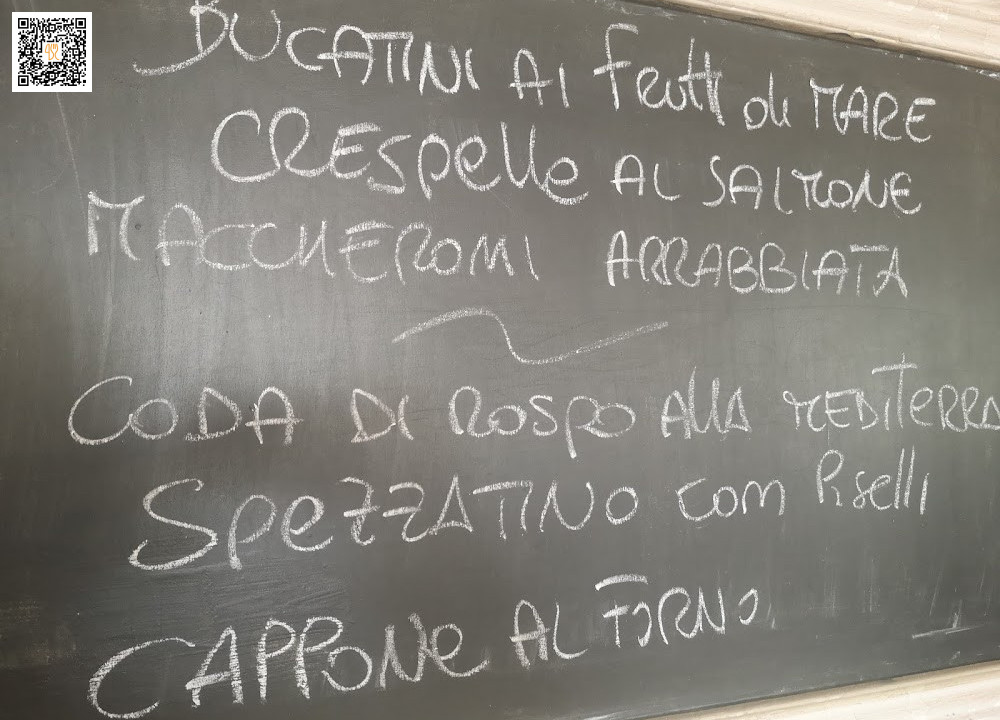 BUCATINI AI FRUTTI di MARE
CRESPELLE AL SALMONE
MACCHERONI ARRABBIATA
CODA DI ROSPO ALLA MEDITERRA
SPEZZATINO CON PISELLI
CAPPONE AL FORNO